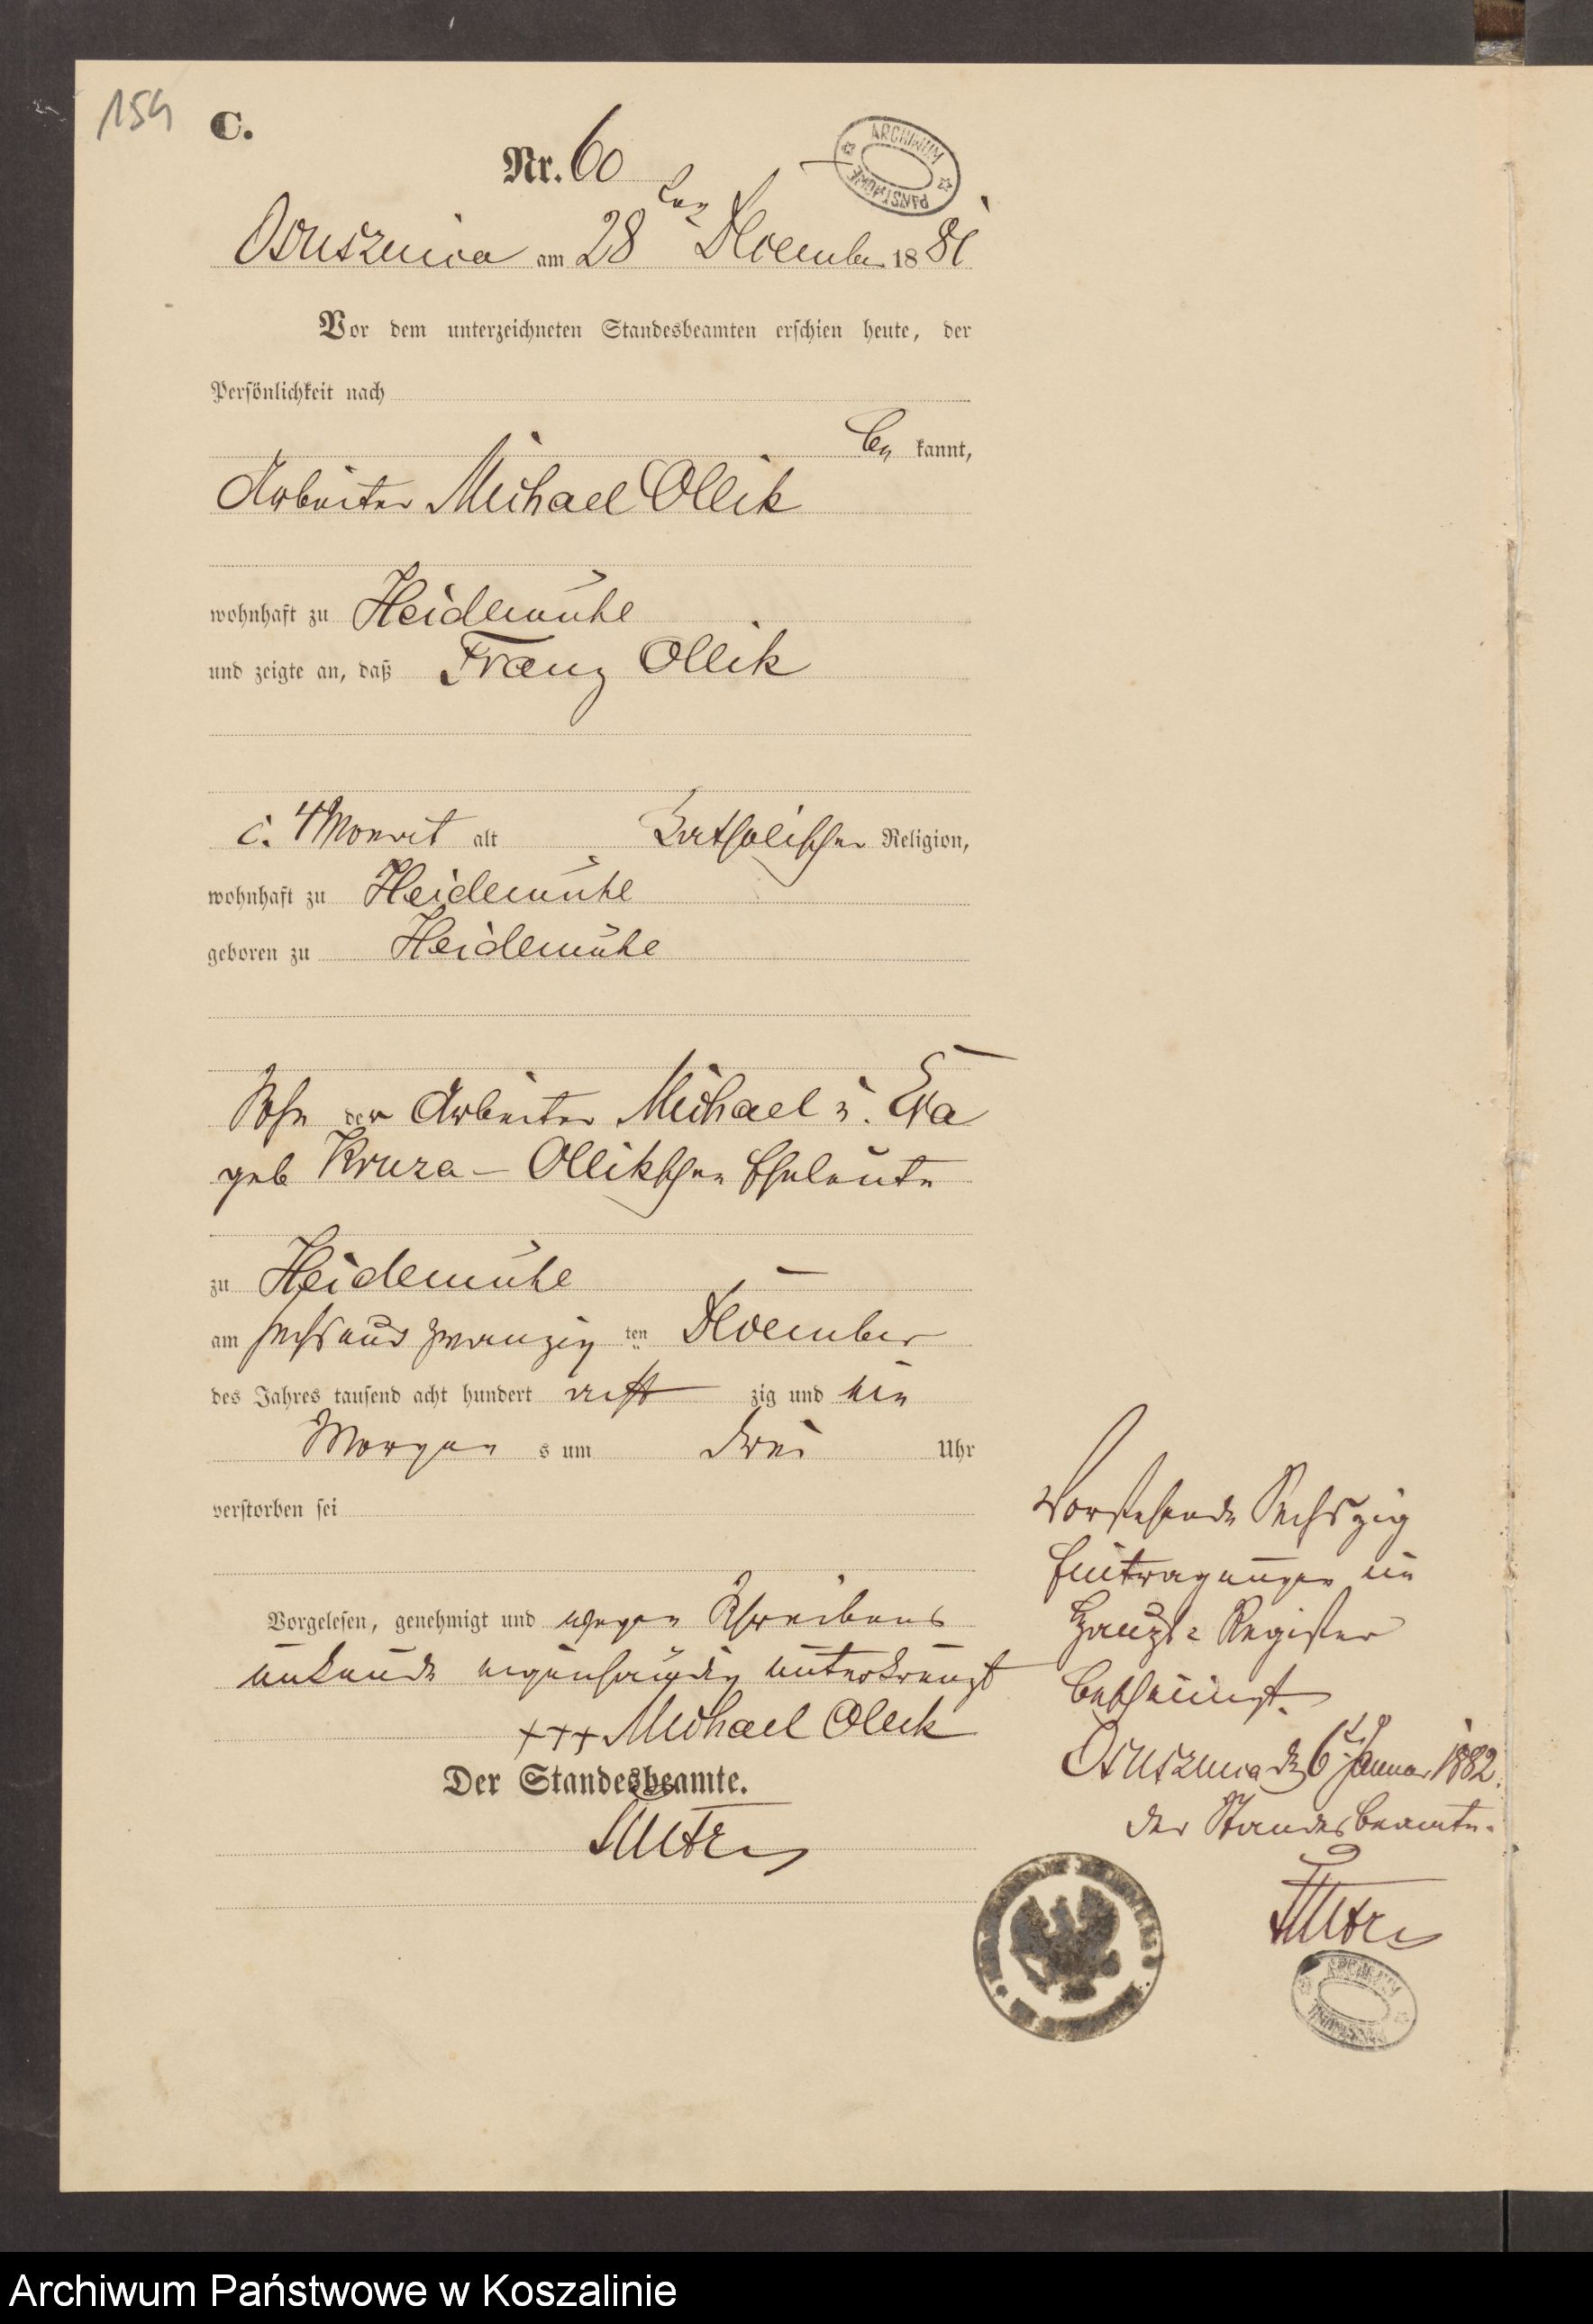 159
C.
Nr. 60
ARCHIWUM PAŃSTWOWE
Osusznica am 28 ten December 1881
Vor dem unterzeichneten Standesbeamten erschien heute, der
Persönlichkeit nach
be kannt,
Arbeiter Michael Ollik
wohnhaft zu Heidemühl
und zeigte an, daß Franz Ollik
c. 4 Monat alt Katholischer Religion,
wohnhaft zu Heidemühl
geboren zu Heidemühl
Sohn der Arbeiter Michael u. Eva
geb Kruza - Ollikschen Eheleute
zu Heidemühl
am sechs und zwanzig ten December
des Jahres tausend acht hundert acht zig und ein
Morgen s um drei Uhr
verstorben sei
Vorgelesen, genehmigt und wegen Schreibens
unkunde eigenhändig unterkreuzt
+++ Michael Olick
Der Standesbeamte.
Vorstehende Sechszig
Eintragungen im
Haupt= Register
bescheinigt.
Osusznica d 6t Januar 1882.
Der Standesbeamte.
ARCHIWUM PAŃSTWOWE
Archiwum Państwowe w Koszalinie